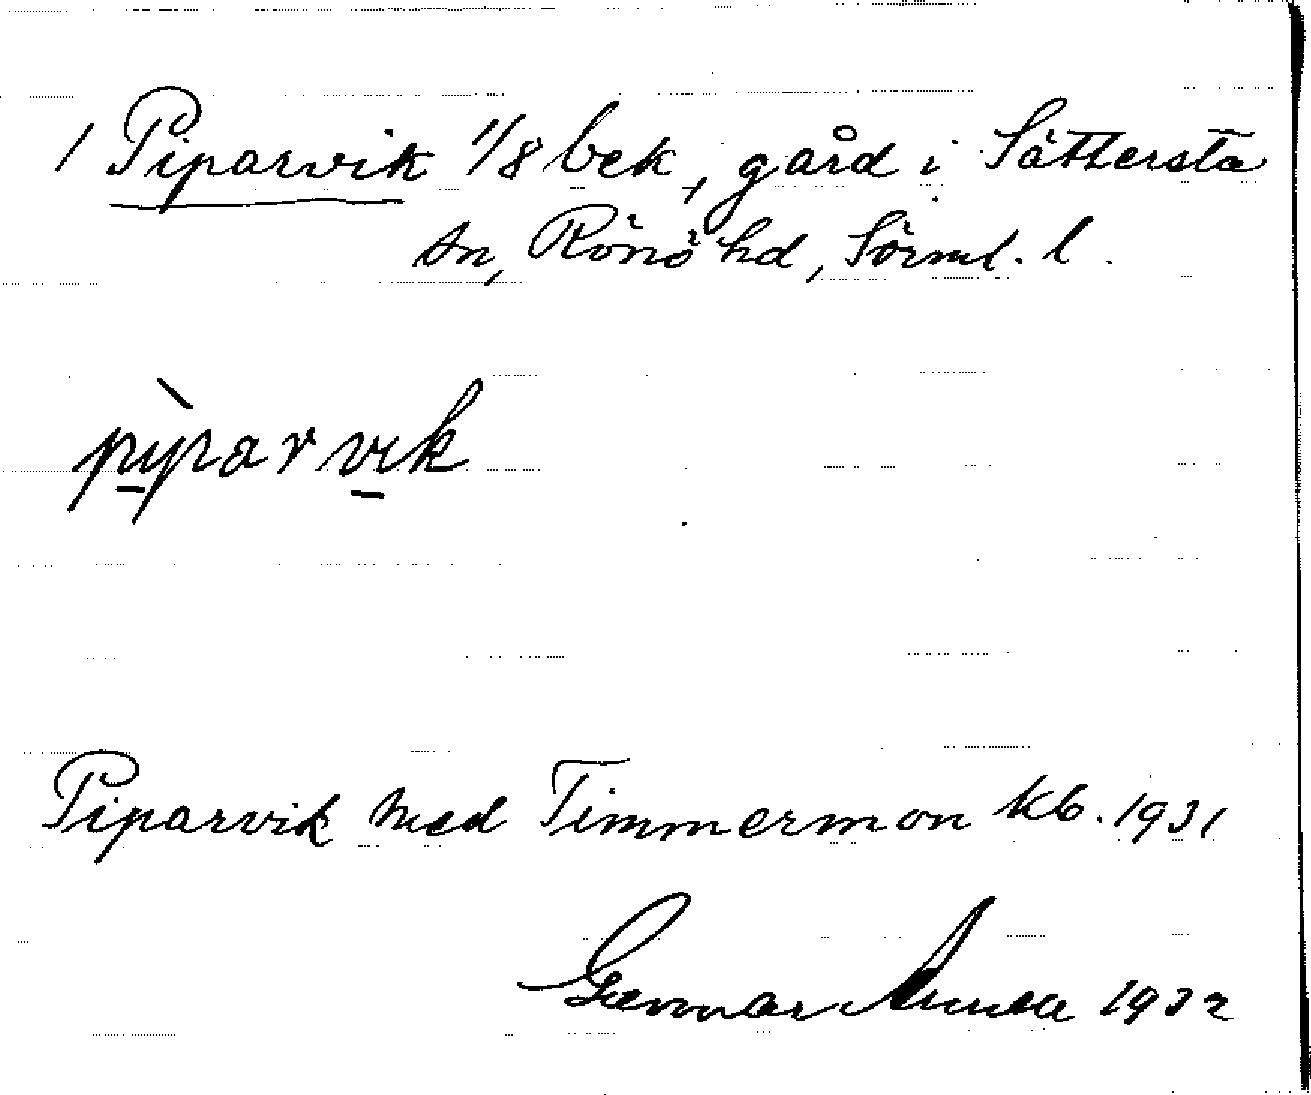 1 Piparvik 1/8 bek, gård i Sättersta
sn, Rönö hd, Sörml. l.
pỳparvik
Piparvik med Timmermon kb. 1931
Gunnar 1932